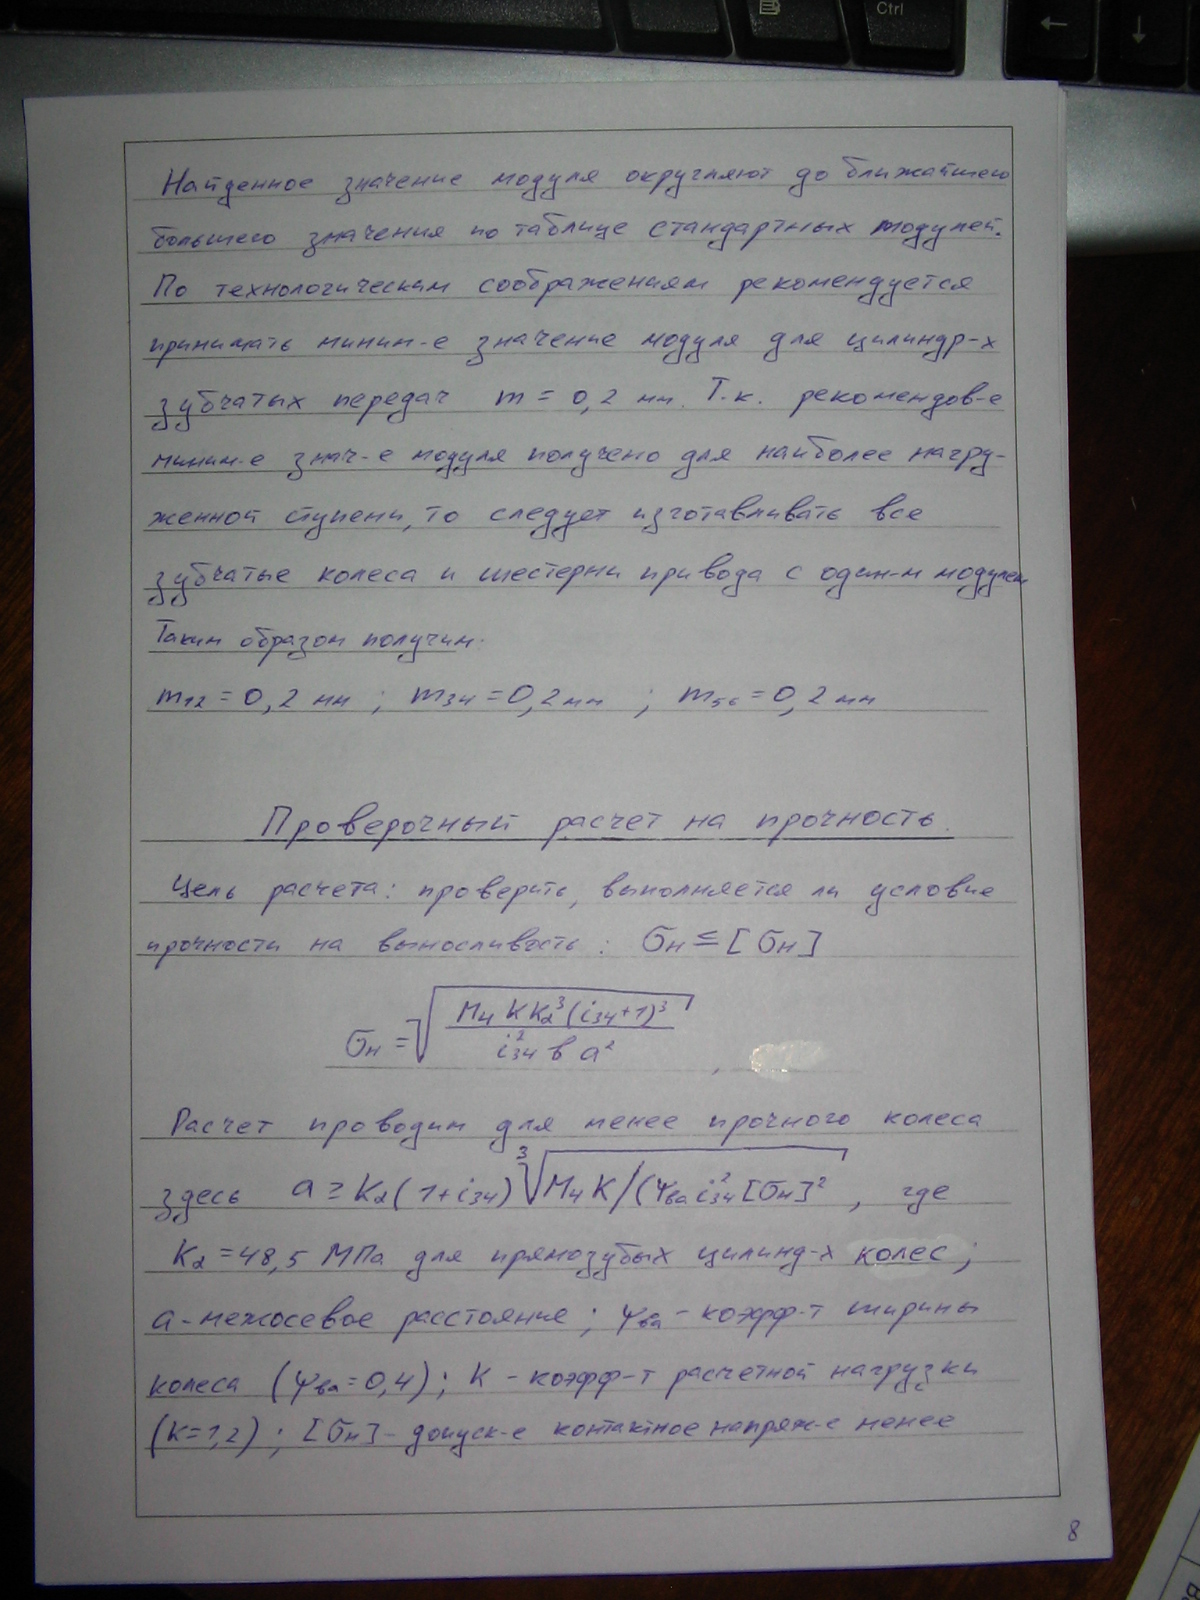 Ctrl
←
↓
Найденное значение модуля округляют до ближайшего
большего значения по таблице стандартных модулей.
По технологическим соображениям рекомендуется
принимать миним-е значение модуля для цилиндр-х
зубчатых передач m = 0,2 мм. Т.к. рекомендов-е
миним-е знач-е модуля получено для наиболее нагру-
женной ступени, то следует изготавливать все
зубчатые колеса и шестерни привода с один-м модулем
Таким образом получим:
m₁₂ = 0,2 мм ; m₃₄ = 0,2 мм ; m₅₆ = 0,2 мм
Проверочный расчет на прочность.
Цель расчета: проверить, выполняется ли условие
прочности на выносливость: σн ≤ [σн]
σн = √(M₄ K K₂³ (i₃₄+1)³ / i₃₄² в a²) ,
Расчет проводим для менее прочного колеса
здесь a ≥ K₂(1+i₃₄) ³√M₄K/(ψва i₃₄² [σн]² , где
K₂ = 48,5 МПа для прямозубых цилинд-х колес;
a - межосевое расстояние; ψва - коэфф-т ширины
колеса (ψва = 0,4); K - коэфф-т расчетной нагрузки
(K=1,2); [σн] - допуск-е контактное напряж-е менее
8